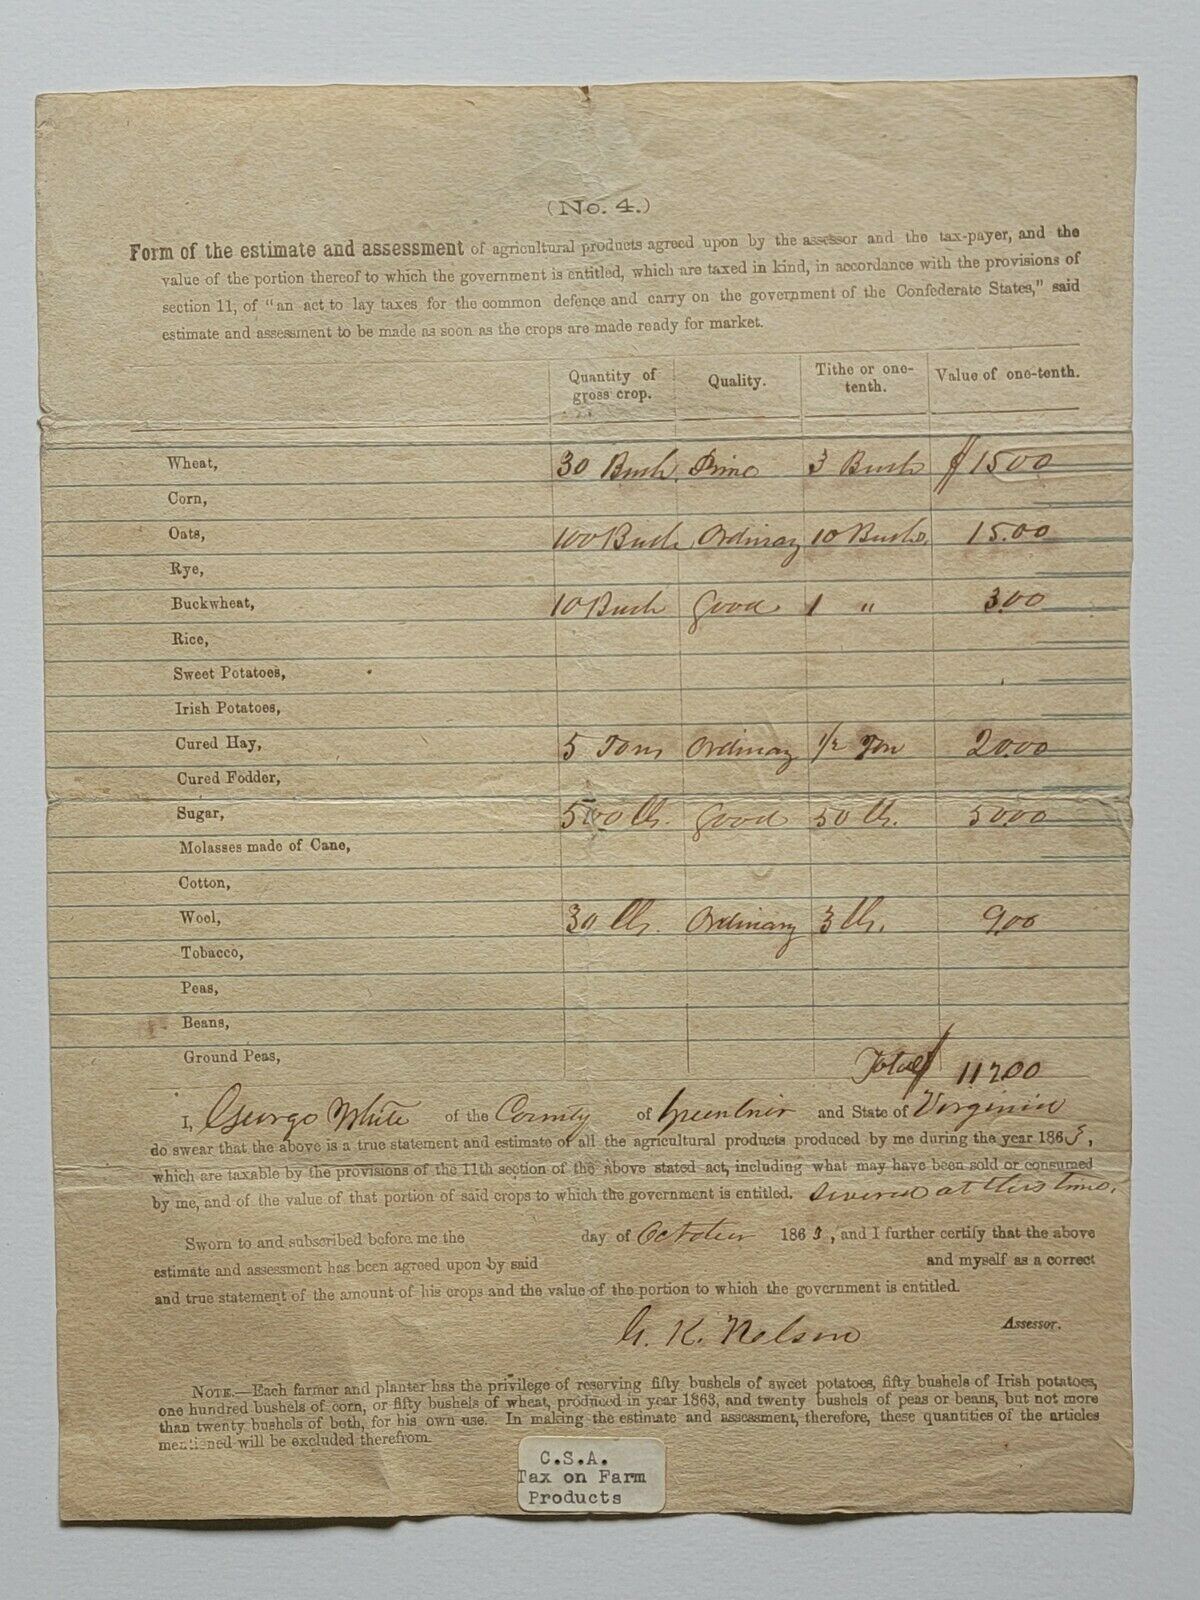 (No. 4.)
Form of the estimate and assessment of agricultural products agreed upon by the assessor and the tax-payer, and the
value of the portion thereof to which the government is entitled, which are taxed in kind, in accordance with the provisions of
section 11, of "an act to lay taxes for the common defence and carry on the government of the Confederate States," said
estimate and assessment to be made as soon as the crops are made ready for market.
Quantity of gross crop. Quality. Tithe or one-tenth. Value of one-tenth.
Wheat, 30 Bush. Prime 3 Bush $15 00
Corn,
Oats, 100 Bush Ordinary 10 Bush. 15.00
Rye,
Buckwheat, 10 Bush Good 1 " 3.00
Rice,
Sweet Potatoes,
Irish Potatoes,
Cured Hay, 5 Tons Ordinary 1/2 Ton 20.00
Cured Fodder,
Sugar, 500 lbs. Good 50 lbs. 50.00
Molasses made of Cane,
Cotton,
Wool, 30 lbs. Ordinary 3 lbs. 9.00
Tobacco,
Peas,
Beans,
Ground Peas,
Total $ 112.00
I, George White of the County of Greenbrier and State of Virginia
do swear that the above is a true statement and estimate of all the agricultural products produced by me during the year 1863,
which are taxable by the provisions of the 11th section of the above stated act, including what may have been sold or consumed
by me, and of the value of that portion of said crops to which the government is entitled. at this time.
Sworn to and subscribed before me the day of October 1863, and I further certify that the above
estimate and assessment has been agreed upon by said and myself as a correct
and true statement of the amount of his crops and the value of the portion to which the government is entitled.
G. K. Nelson Assessor.
NOTE.—Each farmer and planter has the privilege of reserving fifty bushels of sweet potatoes, fifty bushels of Irish potatoes,
one hundred bushels of corn, or fifty bushels of wheat, produced in year 1863, and twenty bushels of peas or beans, but not more
than twenty bushels of both, for his own use. In making the estimate and assessment, therefore, these quantities of the articles
mentioned will be excluded therefrom.
C.S.A.
Tax on Farm
Products